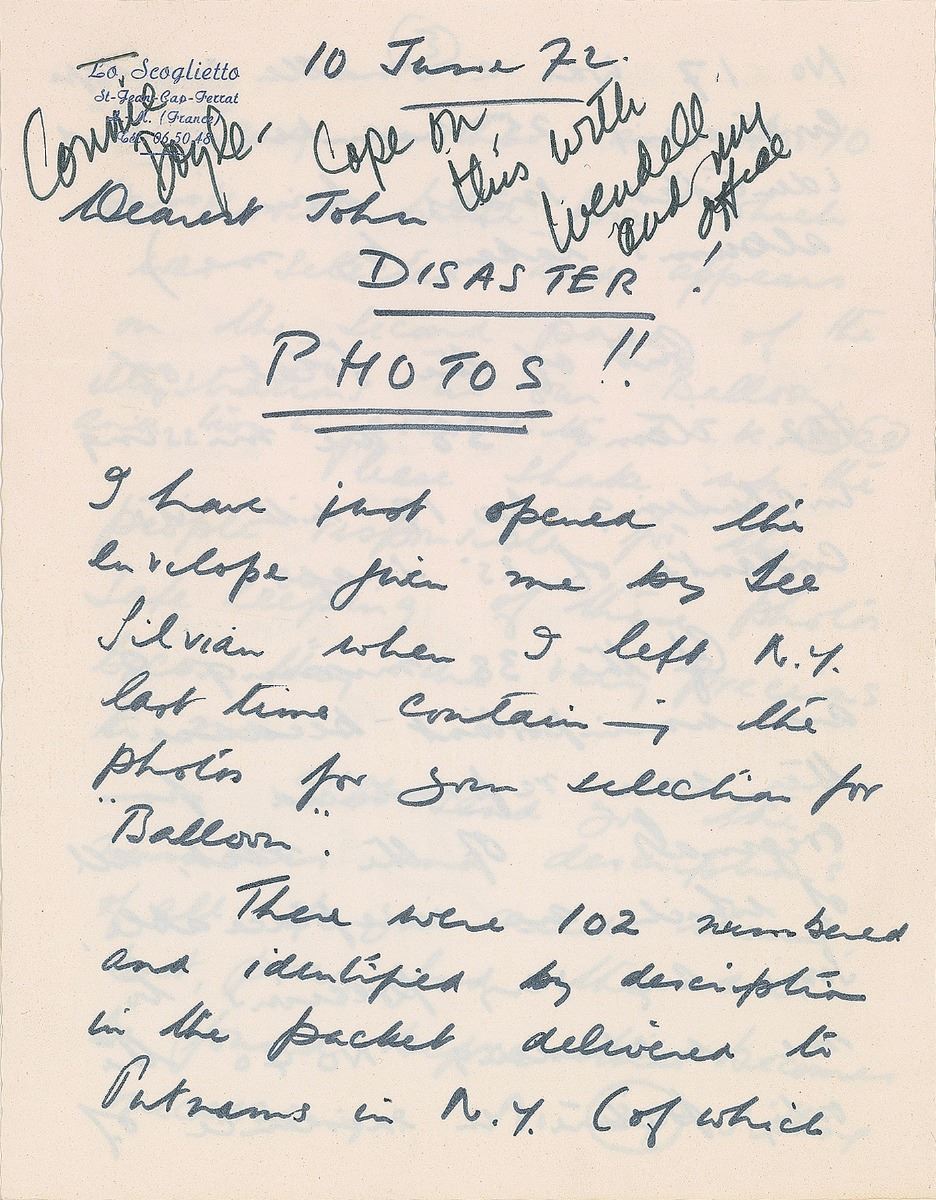 Lo Scoglietto
St-Jean-Cap-Ferrat
A.M. (France)
Tél. 06.50.48
10 June 72.
Connie
Cope on
this with
Wendell
and my
office
Dearest John
DISASTER !
PHOTOS !!
I have just opened the
envelope given me by Lee
Silvian when I left N.Y.
last time containing the
photos for your selection for
"Balloon".
There were 102 numbered
and identified by description
in the packet delivered to
Putnams in N.Y. (of which